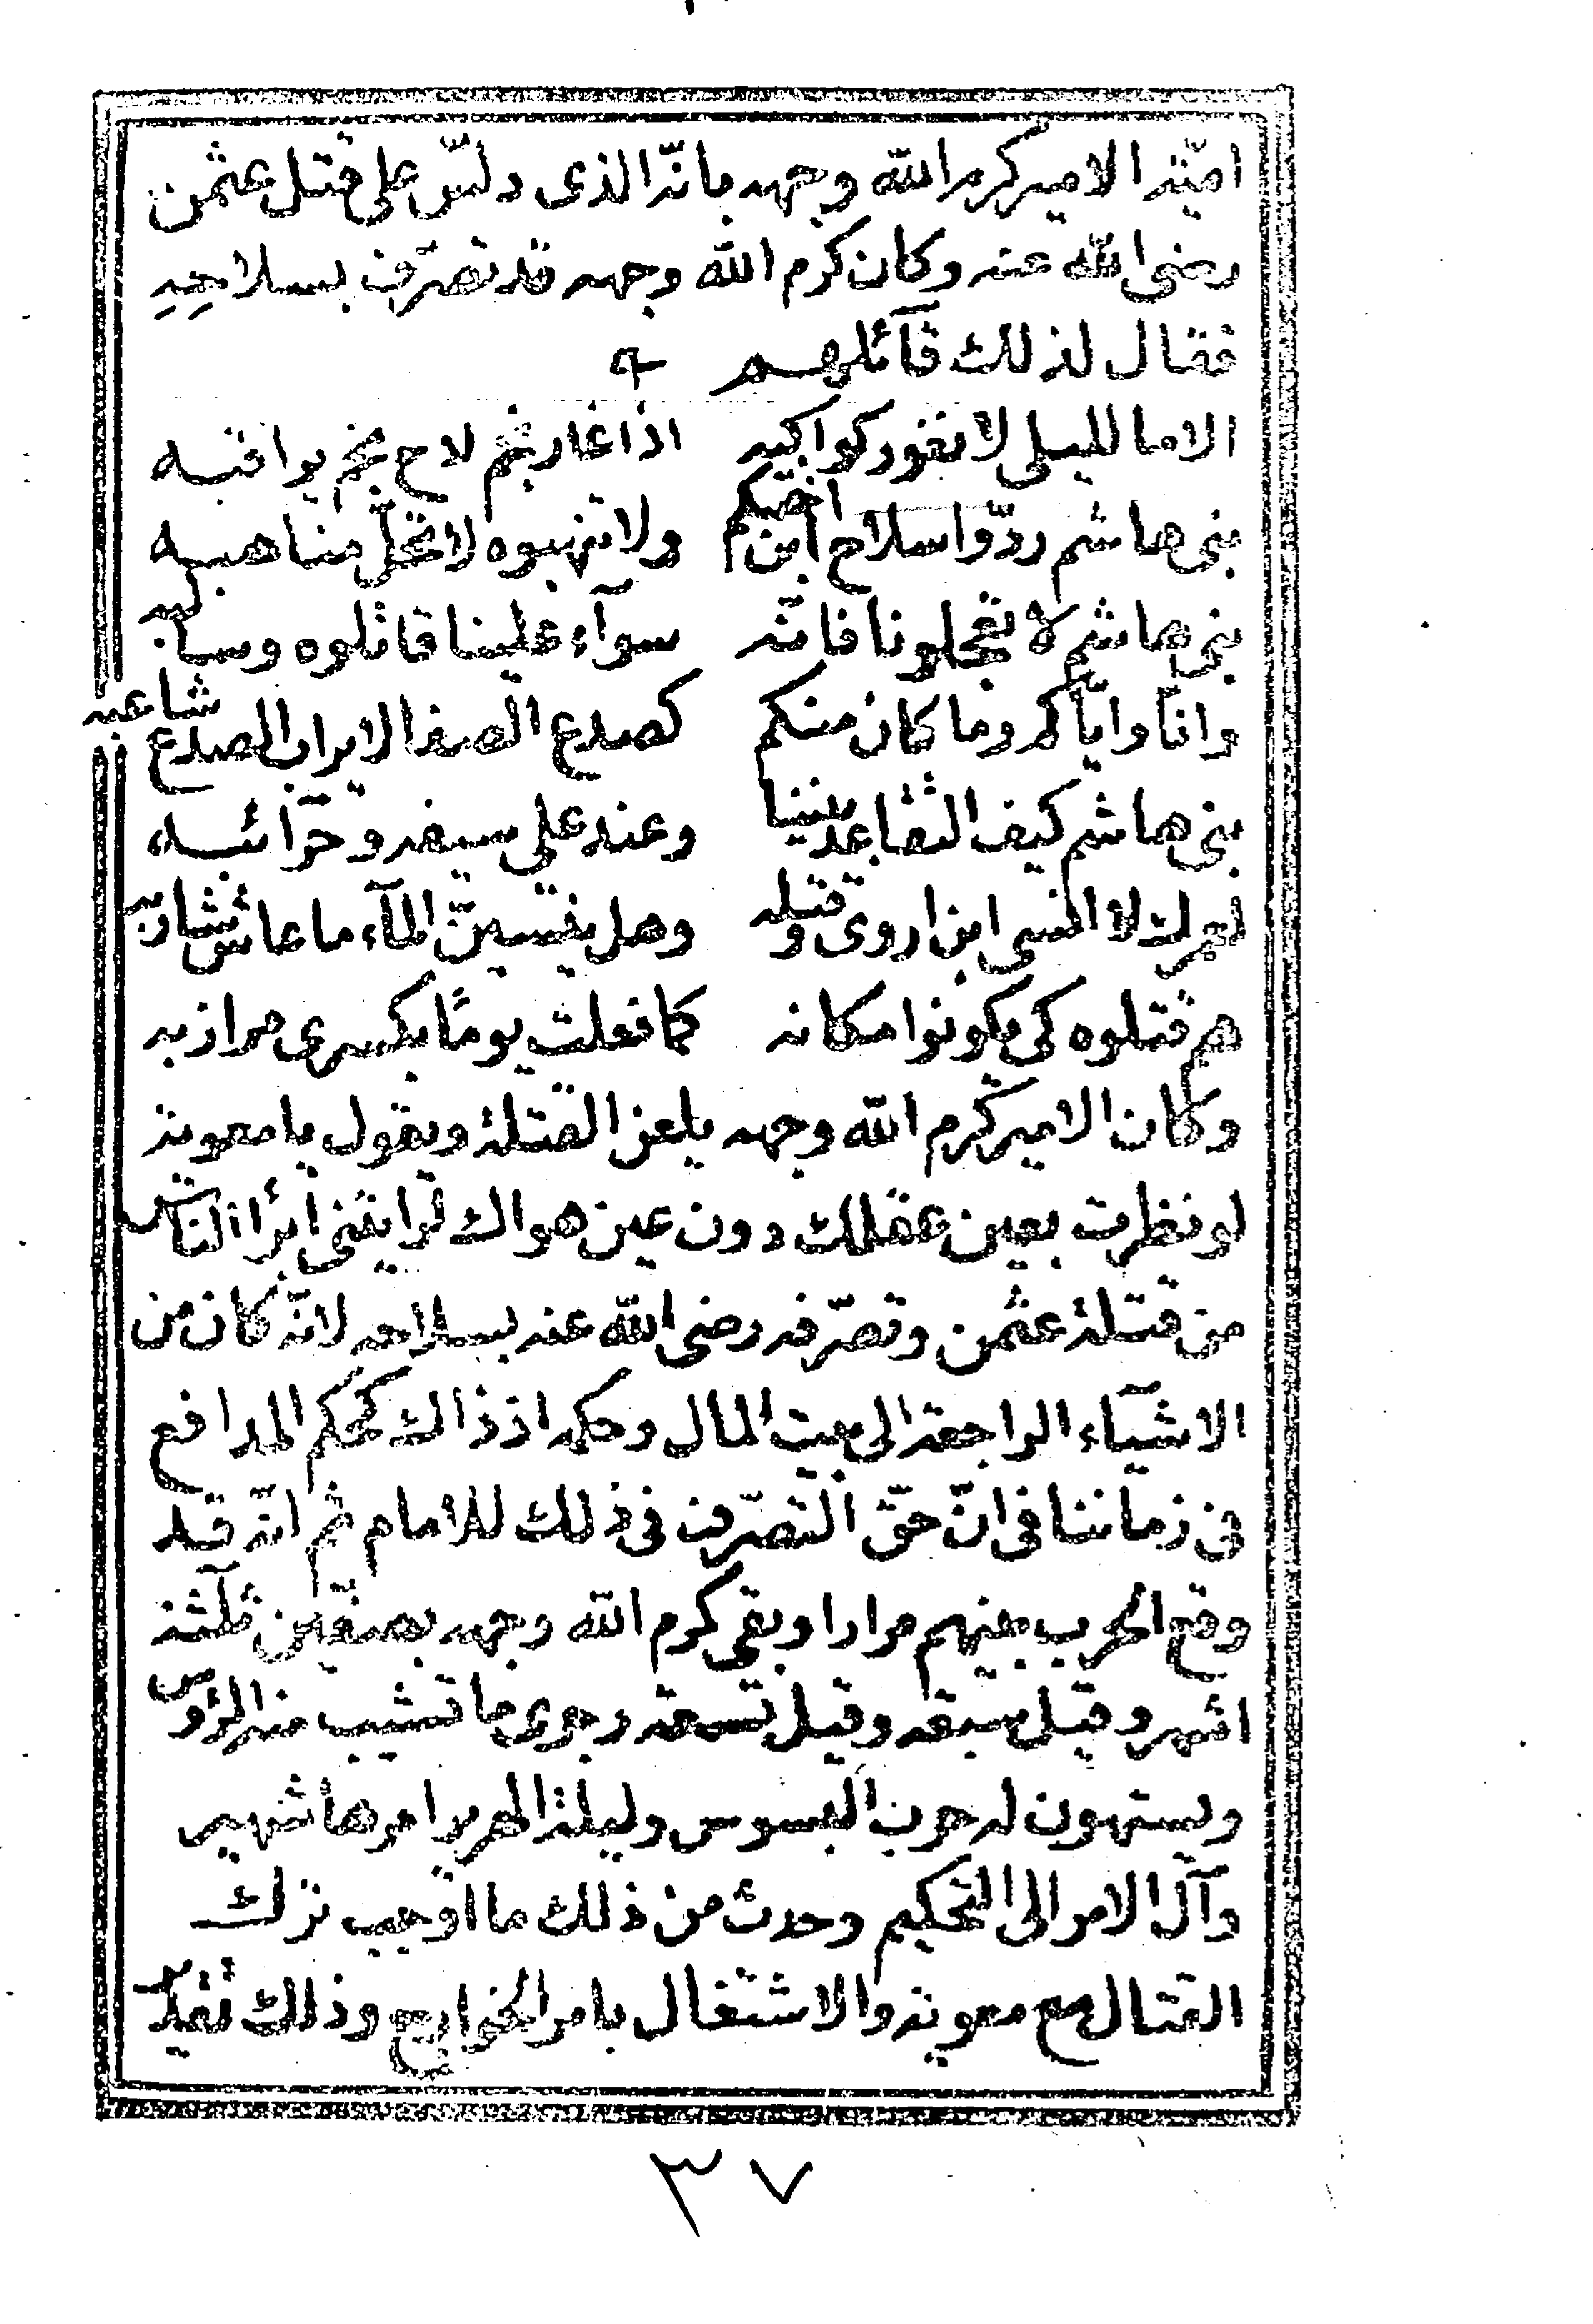 اميّة الامير كرم الله وجهه بانّه الذى دلسّ على قتل عثمن
رضى الله عنه وكان كرم الله وجهه قد تصرّف بسلاحِهِ
فقال لذلك قآئلهم
الا ما لليلى لا تغور كواكبه اذا غار نجم لاح نجم يراقبه
بنى هاشم ردّوا سلاح ابن اختكم ولا تنهبوه لا تحلّ مناهبه
بنى هاشم لا تعجلونا فانّه سوآء علينا قاتلوه وسالبه
وانّا وايّاكم وما كان منكم كصدع الصفا لا يراب الصدع شاعبه
بنى هاشم كيف التقاعد بيننا وعند على سيفه وحرآئبه
لعمرك لا انسى ابن اروى وقتله وهل ينسينّ المآء ما عاش شاربه
هم قتلوه كى يكونوا مكانه كما فعلت يومًا بكسرى مرازبه
وكان الامير كرم الله وجهه يلعن القتلة ويقول يا معوية
لو نظرت بعين عقلك دون عين هواك لرايتنى ابرأ الناس
من قتلة عثمن وتصرّفه رضى الله عنه بسلاحه لانّه كان من
الاشيآء الراجعة الى بيت المال وحكمه اذ ذاك كحكم المدافع
فى زماننا فى انّ حقّ التصرّف فى ذلك للامام ثم انّه قد
وقع الحرب بينهم مرارا وبقى كرم الله وجهه بصفّين ثلٰثة
اشهر وقيل سبعة وقيل تسعة وجرى ما تشيب منه الرؤس
ويستهون له حرب البسوس وليلة الهرير امرها شهير
وآل الامر الى التحكيم وحدث من ذلك ما اوجب ترك
القتال مع معوية والاشتغال بامر الخوارج وذلك تقدير
٣٧